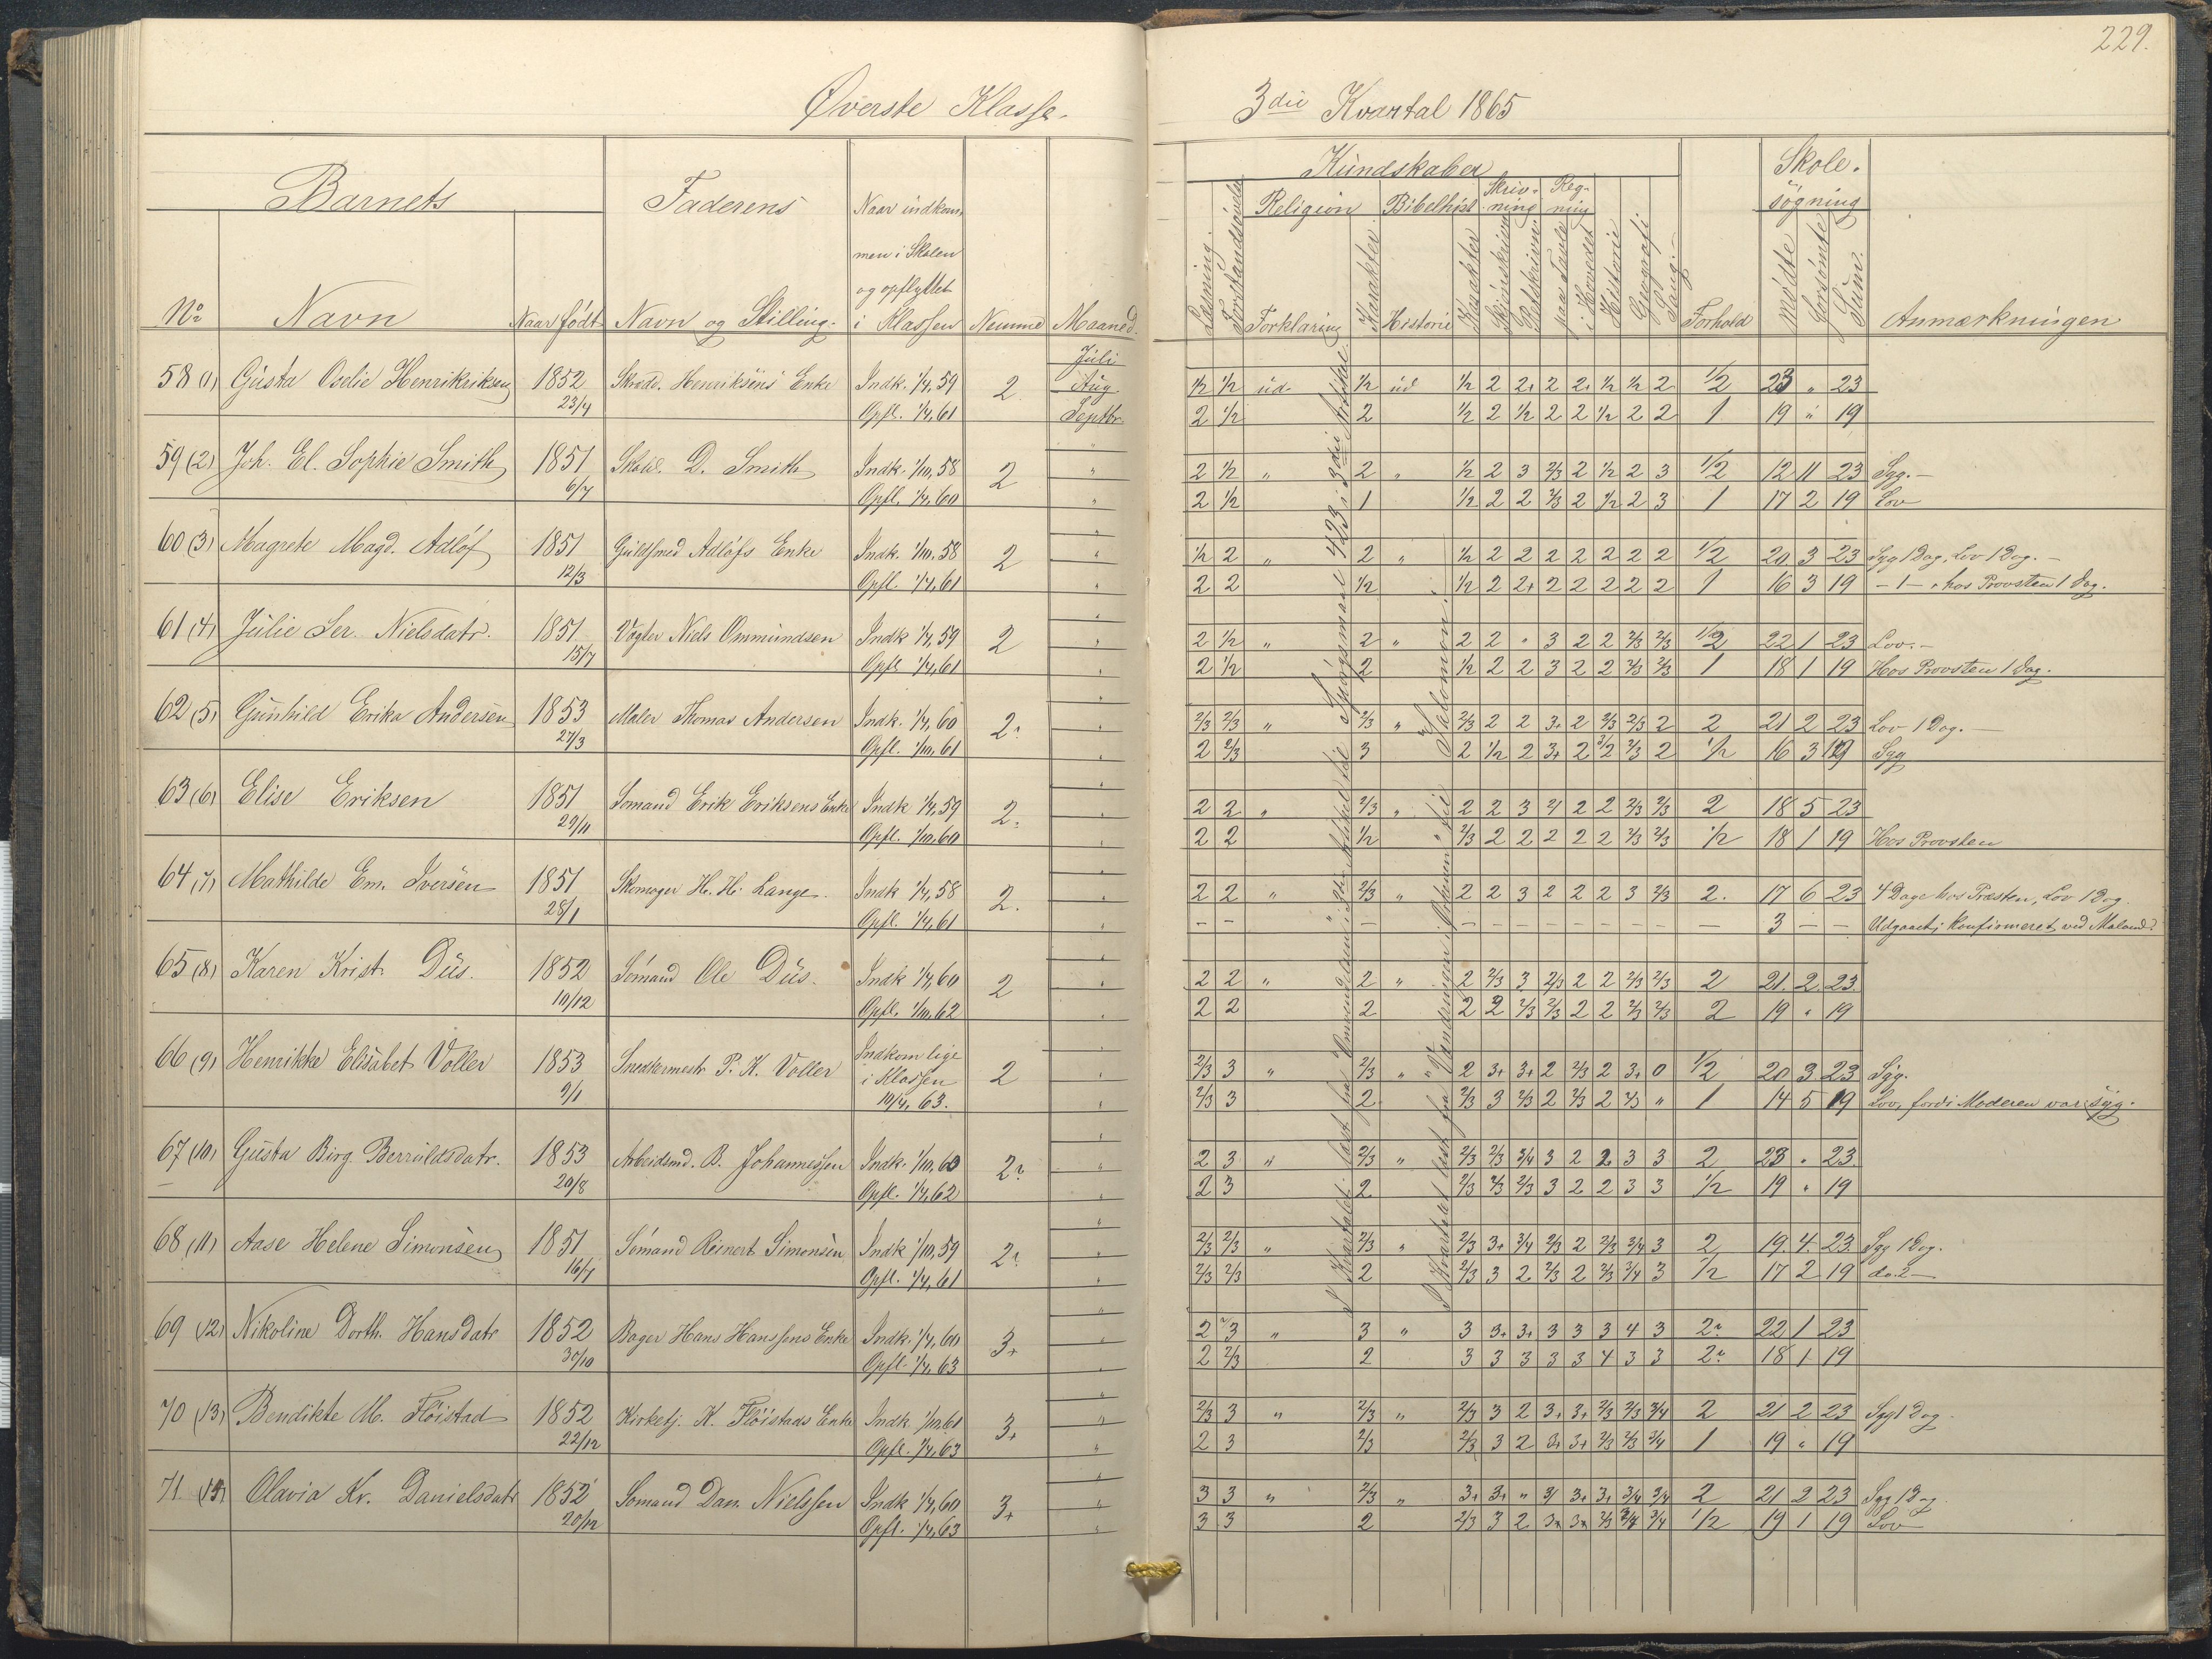 229.
Øverste Klasse.
3die Kvartal 1865
Barnets
Faderens
Naar indkommen i Skolen og opflyttet i Klassen
Kundskaber
Skolesøgning
Religion Bibelhist Skrivning Regning
No Navn Naar født Navn og Stilling. Nemme Maaned.
Læsning. Forklaring Karakter Historie Karakter Skjønskrivn Retskrivn paa Tavle i Hovedet Historie Geografi Sang. Forhold Mødte Forsømte Sum. Anmærkningen
Juli
58 (1) Gusta Oselie Henrikriksen 1852 Henriksens Enke Indk. 1/4, 59 2 Aug. 1/2 1/2 ud. 1/2 ud 1/2 2 2+ 2 2+ 1/2 1/2 2 1/2 23 " 23
23/4 Opfl. 1/4, 61 Septbr. 2 1/2 2 1/2 2 1/2 2 2 1/2 2 2 1 19 " 19
59 (2) Joh. El. Sophie Smith 1851 D. Smith Indk. 1/10, 58 2 " 2 1/2 " 2 " 1/2 2 3 2/3 2 1/2 2 3 1/2 12 11 23 Syg. –
6/7 Opfl. 1/4, 60 " 2 1/2 1 1/2 2 2 2/3 2 1/2 2 3 1 17 2 19 Lov
60 (3) Magrete Magd. Adløf 1851 Guldsmed Adløfs Enke Indk. 1/10, 58 2 " 1/2 2 " 2 " 1/2 2 2 2 2 2 2 2 1/2 20 3 23 Syg 1 Dag, Lov 1 Dag. –
12/3 Opfl. 1/4, 61 " 2 2 1/2 1/2 2 2+ 2 2 2 2 2 1 16 3 19 – 1 – " hos Provsten 1 Dag.
61 (4) Julie Ser. Nielsdatr. 1851 Vægter Niels Ommundsen Indk 1/4, 59 2 " 2 1/2 " 2 " 2 2 " 3 2 2 2/3 2/3 1/2 22 1 23 Lov. –
15/7 Opfl 1/4, 61 " 2 1/2 2 1/2 2 2 3 2 2 2/3 2/3 1 18 1 19 Hos Provsten 1 Dag.
62 (5) Gunhild Erika Andersen 1853 Maler Thomas Andersen Indk. 1/4, 60 2 " 2/3 2/3 " 2/3 " 2/3 2 2 3+ 2 2/3 2/3 2 2 21 2 23 Lov 1 Dag. –
27/3 Opfl. 1/10, 61 " 2 2/3 3 2 1/2 2 3+ 2 3/2 2/3 2 1/2 16 3 19 Syg
63 (6) Elise Eriksen 1851 Sømand Erik Eriksens Enke Indk 1/4, 59 2. " 2 2 " 2/3 " 2 2 3 2 2 2 2/3 2/3 2 18 5 23
29/11 Opfl. 1/10, 60 " 2 2 1/2 2/3 2 2 2 2 2 2/3 2/3 1/2 18 1 19 Hos Provsten
64 (7) Mathilde Em. Iversen 1851 Skomager H. H. Lange. Indk 1/4, 58 2. " 2 2 " 2/3 " 2 2 3 2 2 2 3 2/3 2. 17 6 23 4 Dage hos Præsten, Lov 1 Dag.
28/1 Opfl. 1/4, 61 " – – – – – – – – – – – – 3 – – Udgaaet; Konfirmeret,
65 (8) Karen Krist. Dus. 1852 Sømand Ole Dus. Indk 1/4, 60 2 " 2 2 " 2 " 2 2/3 3 2/3 2 2 2/3 2/3 2 21. 2. 23.
10/12 Opfl. 1/10, 62 " 2 2 2 2 2 2/3 2/3 2 2 2/3 2/3 2 19 " 19
66 (9) Henrikke Elisabet Voller 1853 Snedkermestr P. K. Voller Indkom lige i Klassen 2 " 2/3 3 " 2/3 " 2 3+ 3+ 2 2/3 2 3+ 0 1/2 20 3 23 Syg.
9/1 10/4, 63. " 2/3 3 2 2/3 3 2/3 2 2/3 2 2/3 " 1 14 5 19 Lov, fordi Moderen var syg.
67 (10) Gusta Birg. Berruldsdatr. 1853 Arbeidsmd. B. Johannessen Indk. 1/10, 60 2 " 2 3 " 2/3 " 2/3 2/3 3/4 3 2 2 3 3 2 23 " 23.
20/8 Opfl. 1/4, 62 " 2 3 2 2/3 2/3 2/3 3 2 2 3 3 1/2 19 " 19
68 (11) Aase Helene Simonsen 1851 Sømand Reinert Simonsen Indk 1/10, 59 2 " 2/3 2/3 " 2/3 " 2/3 3+ 3/4 2/3 2 2/3 3/4 3 2 19. 4. 23. Syg 1 Dag.
16/7 Opfl. 1/4, 61 " 2/3 2/3 2 2/3 3 2 2/3 2 2/3 3/4 3 1/2 17 2 19 do. 2 –
69 (12) Nikoline Dorth. Hansdatr 1852 Bager Hans Hanssens Enke Indk. 1/4, 60 3+ " 2 3 " 3 " 3 3+ 3+ 3 3 3 4 3 2 22 1 23
30/10 Opfl. 1/4, 63 " 2 2/3 2 3 3 3 3 3 4 3 3 2 18 1 19
70 (13) Bendikte M. Fløistad 1852 Kirketj. K. Fløistads Enke Indk 1/10 61 3+ " 2/3 3 " 2/3 " 2/3 3 2 3+ 3+ 2/3 2/3 3/4 2 21 2 23 Syg 1 Dag
22/12 Opfl. 1/4, 63 " 2 3 2/3 2/3 3 2 3+ 3+ 2/3 2/3 3/4 1 19 " 19
71 (14) Olavia Kr. Danielsdatr 1852 Sømand Dan. Nielssen Indk 1/4, 60 3+ " 3 3 " 2/3 " 3+ 3+ " 3 3+ 3+ 3/4 3/4 2 21 2 23 Syg 1 Dag.
20/12 Opfl. 1/4, 63 " 3 3 2 2/3 3 2 3+ 3+ 2/3 3/4 3/4 1/2 19 1 19 Lov